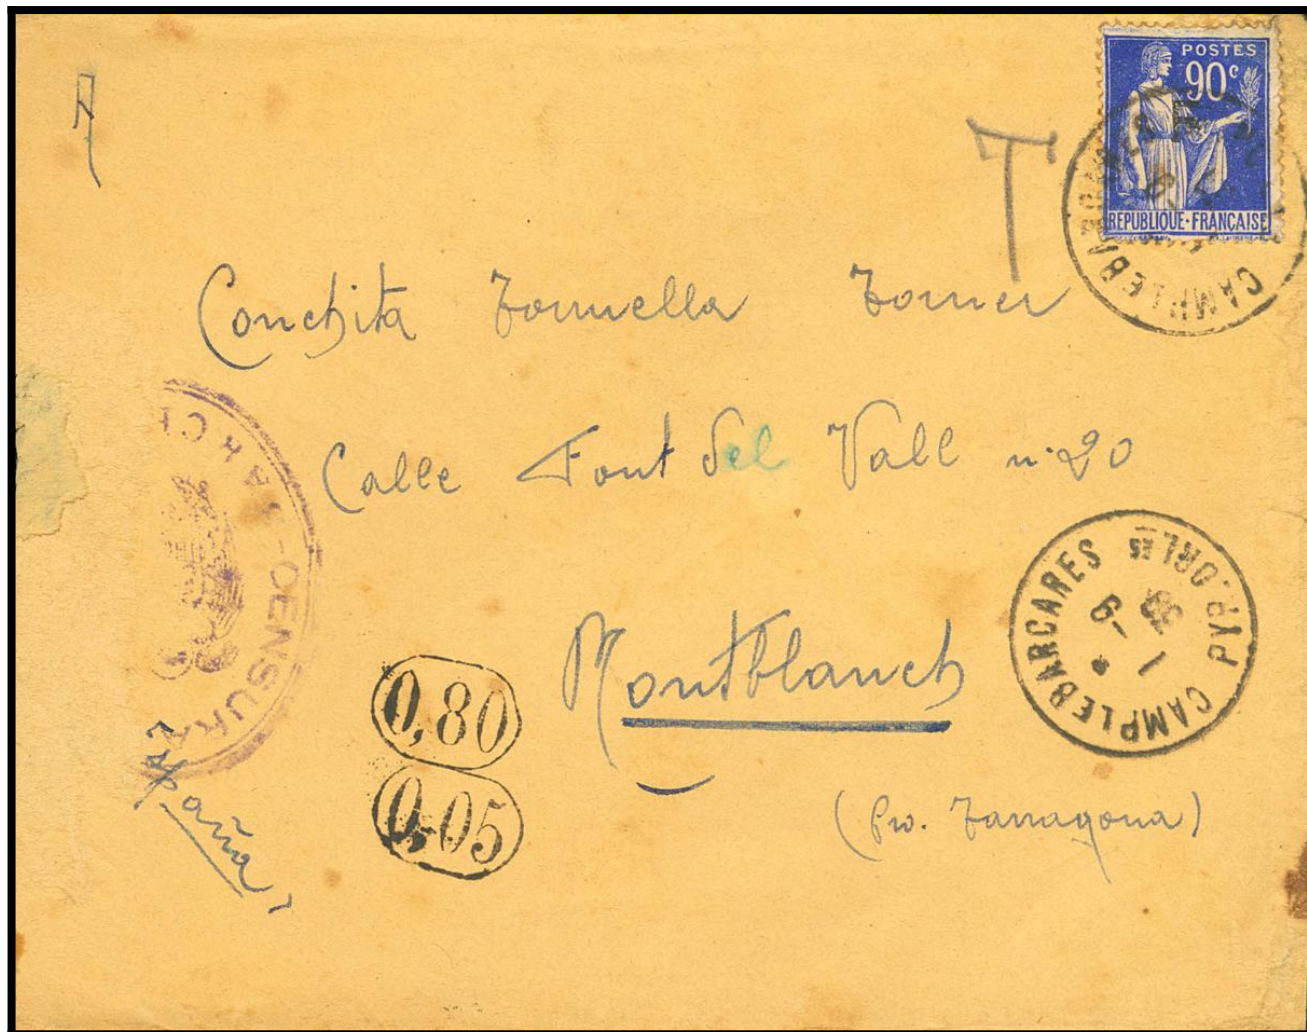 POSTES
90c
REPUBLIQUE·FRANÇAISE
CAMPLEBARCARES
T
Conchita Tornuella Torner
Calle Font del Vall nº 20
Montblanch
(Pro. Tarragona)
España
CENSURA
CAMPLEBARCARES PYR.ORLES
1 -9
39
0,80
0,05